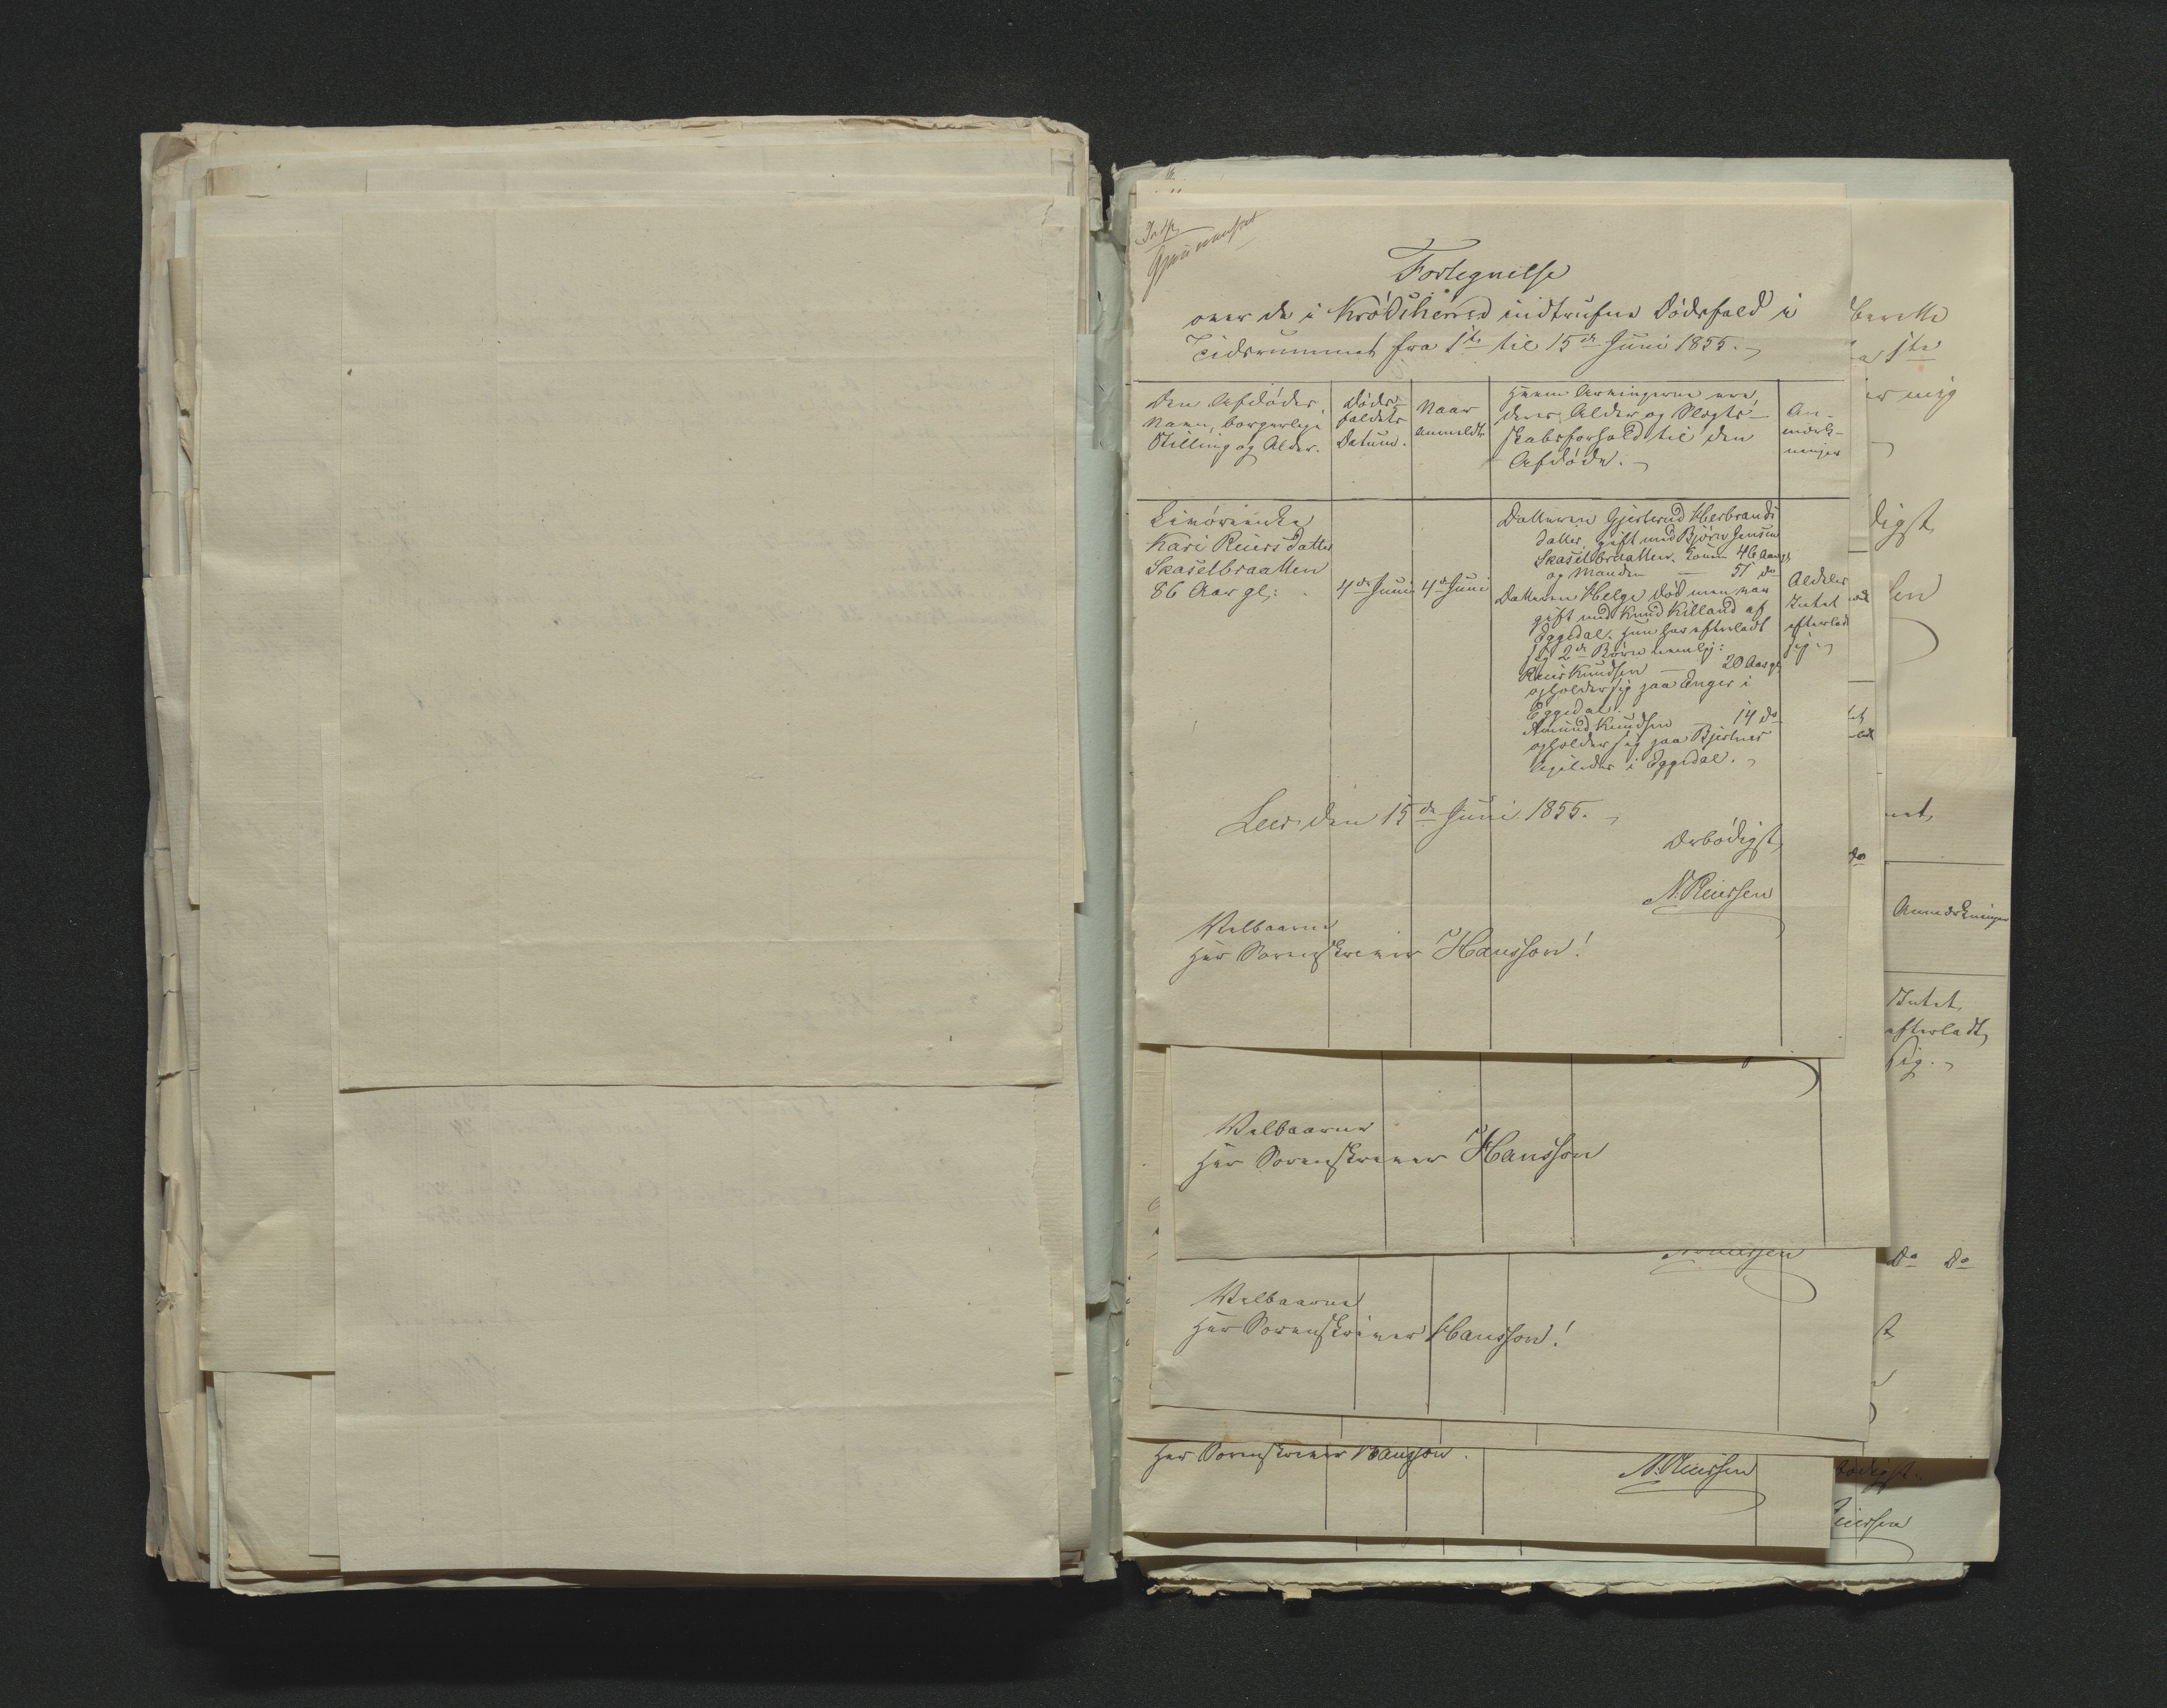 Fortegnelse
over de i Krødsherred indtrufne Dødsfald i
Tidsrummet fra 1ste til 15de Juni 1855.
Den Afdødes
Navn, borgerlige
Stilling og Alder.
Døds-
faldets
Datum.
Naar
anmeldt.
Hvem Arvingerne ere,
deres Alder og Slægts-
skabsforhold til den
Afdøde.
An-
mærk-
ninger
Kari Reiersdatter
Skaselbraatten
86 Aar gl:
4de Juni
4de Juni
Datteren Gjertrud Herbrands
datter, gift med Bjørn Jensen
Skaselbraatten. Konen 46 Aar gl,
og Manden — 51 do
Datteren Helge død men var
gift med Knud Killand af
Eggedal. Hun har efterladt
sig 2de Børn nemlig:
Reier Knudsen — 20 Aar gl.
opholder sig paa Enger i
Eggedal.
Amund Knudsen — 14 do
opholder sig paa Bjertnes
ligeledes i Eggedal.
Aldeles
Intet
efterladt
sig.
Leer den 15de Juni 1855.
Ærbødigst,
N. Reiersen
Velbaarne
Herr Sorenskriver Hansson!
Velbaarne
Herr Sorenskriver Hansson
Velbaarne
Herr Sorenskriver Hansson!
Herr Sorenskriver Hansson.
N. Reiersen
1ste
mig
Anmærkninger
Intet
efterladt
sig.
Do Do